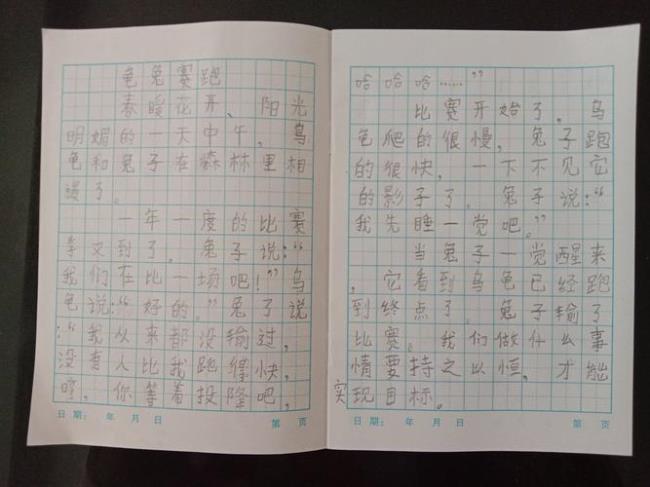 龟兔赛跑
春暖花开、阳光
明媚的一天中午,乌
龟和兔子在森林里相
遇了。
一年一度的比赛
季又到了。兔子说:“
我们在比一场吧!”乌
龟说:“好的。”兔子说
:“我从来都没输过,
没有人比我跑得快,
哼,你等着投降吧,
日期: 年 月 日 第 页
哈哈哈……”
比赛开始了。乌
龟爬的很慢,兔子跑
的很快,一下不见它
的影子了。兔子说:“
我先睡一觉吧。”
当兔子一觉醒来
,它看到乌龟已经跑
到终点了。兔子输了
比赛。我们做什么事
情要持之以恒,才能
实现目标。
日期: 年 月 日 第 页